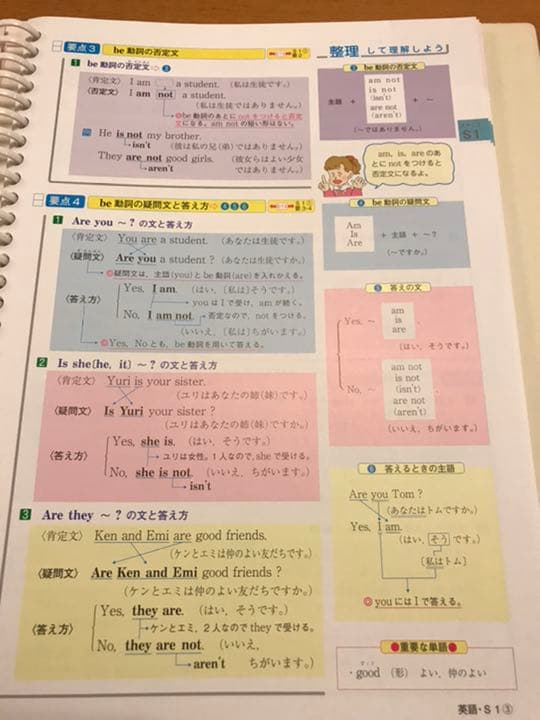 要点3 be動詞の否定文
1 be動詞の否定文⇨3
〈肯定文〉 I am a student. (私は生徒です。)
〈否定文〉 I am not a student.
(私は生徒ではありません。)
◎be動詞のあとにnotをつけると否定
文になる。am notの短い形はない。
He is not my brother.
isn't (彼は私の兄(弟)ではありません。)
They are not good girls. (彼女らはよい少女
aren't ではありません。)
要点4 be動詞の疑問文と答え方⇨4 5 6
1 Are you ～? の文と答え方
〈肯定文〉 You are a student. (あなたは生徒です。)
〈疑問文〉 Are you a student? (あなたは生徒ですか。)
◎疑問文は、主語(you)とbe動詞(are)を入れかえる。
〈答え方〉
Yes, I am. (はい、[私は]そうです。)
youはIで受け、amが続く。
No, I am not. 否定なので、notをつける。
(いいえ、[私は]ちがいます。)
◎Yes, Noとも、be動詞を用いて答える。
2 Is she[he, it] ～? の文と答え方
〈肯定文〉 Yuri is your sister.
(ユリはあなたの姉(妹)です。)
〈疑問文〉 Is Yuri your sister?
(ユリはあなたの姉(妹)ですか。)
〈答え方〉
Yes, she is. (はい、そうです。)
ユリは女性。1人なので、sheで受ける。
No, she is not. (いいえ、ちがいます。)
isn't
3 Are they ～? の文と答え方
〈肯定文〉 Ken and Emi are good friends.
(ケンとエミは仲のよい友だちです。)
〈疑問文〉 Are Ken and Emi good friends?
(ケンとエミは仲のよい友だちですか。)
〈答え方〉
Yes, they are. (はい、そうです。)
ケンとエミ、2人なのでtheyで受ける。
No, they are not. (いいえ、
aren't ちがいます。)
整理して理解しよう
3 be動詞の否定文
主語 +
am not
is not
(isn't)
are not
(aren't)
+ ～
(～ではありません。)
S1
am, is, areのあ
とにnotをつけると
否定文になるよ。
4 be動詞の疑問文
Am
Is
Are
+ 主語 + ～?
(～ですか。)
5 答えの文
Yes, ～
am
is
are
.
(はい、そうです。)
No, ～
am not
is not
(isn't)
are not
(aren't)
.
(いいえ、ちがいます。)
6 答えるときの主語
Are you Tom?
(あなたはトムですか。)
Yes, I am.
(はい、そうです。)
[私はトム]
◎youにはIで答える。
●重要な単語●
・good (形) よい、仲のよい
英語・S1③